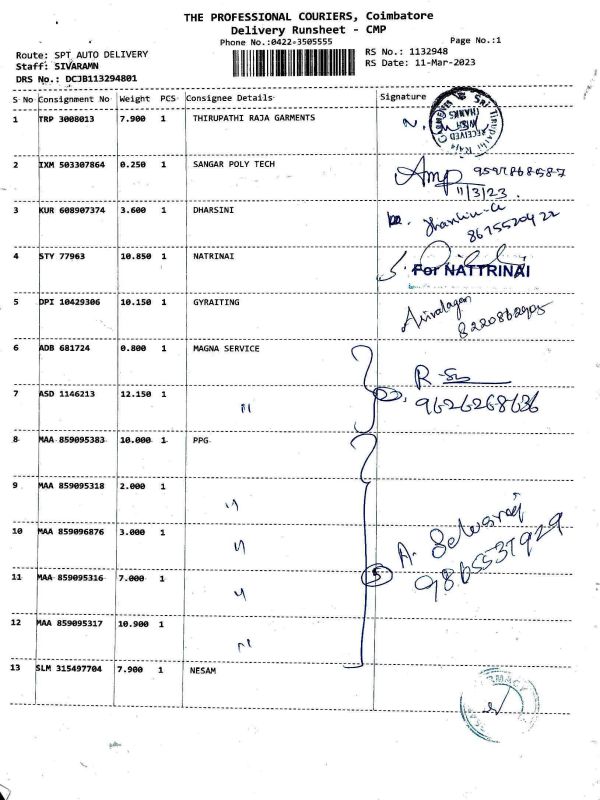 THE PROFESSIONAL COURIERS, Coimbatore
Delivery Runsheet - CMP
Phone No.:0422-3505555
Page No.:1
Route: SPT AUTO DELIVERY
RS No.: 1132948
Staff: SIVARAMN
RS Date: 11-Mar-2023
DRS No.: DCJB113294801
S No Consignment No Weight PCS Consignee Details Signature
1 TRP 3008013 7.900 1 THIRUPATHI RAJA GARMENTS
SRI TIRUPATHI RAJA GARMENTS
RECEIVED WITH THANKS
2 IXM 503307864 0.250 1 SANGAR POLY TECH
11/3/23.
3 KUR 608907374 3.600 1 DHARSINI
8675520422
4 STY 77963 10.850 1 NATRINAI
For NATTRINAI
5 DPI 10429306 10.150 1 GYRAITING
6 ADB 681724 0.800 1 MAGNA SERVICE
7 ASD 1146213 12.150 1 "
9626268636
8 MAA 859095383 10.000 1 PPG
9 MAA 859095318 2.000 1 "
10 MAA 859096876 3.000 1 "
A. Selvaraj
9865537929
11 MAA 859095316 7.000 1 "
5
12 MAA 859095317 10.900 1 "
13 SLM 315497704 7.900 1 NESAM